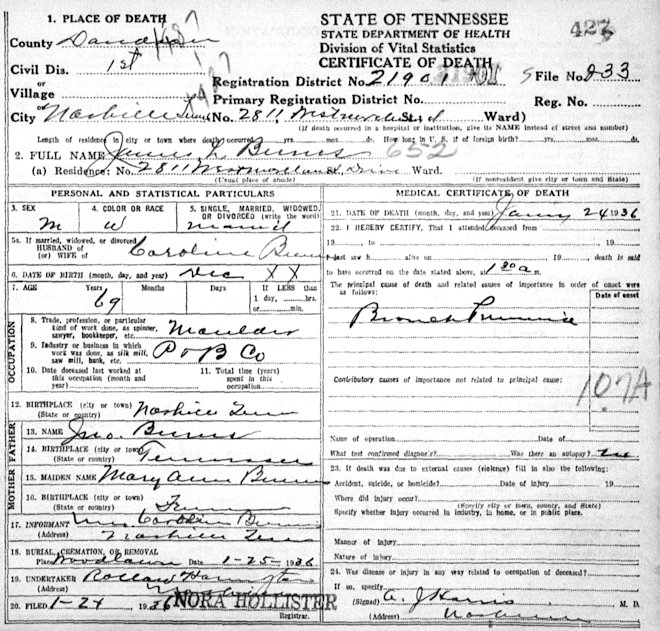 1. PLACE OF DEATH
STATE OF TENNESSEE
STATE DEPARTMENT OF HEALTH
Division of Vital Statistics
CERTIFICATE OF DEATH
County
Civil Dis. 1st
Village
or
City Nashville Tenn
Registration District No. 21901 21901
File No. 233
Primary Registration District No.
Reg. No.
No. 2811 St. Ward)
(If death occurred in a hospital or institution, give its NAME instead of street and number)
Length of residence in city or town where death occurred yrs. mos. ds. How long in U. S. if of foreign birth? yrs. mos. ds.
2. FULL NAME Burns 652
(a) Residence: No. 2811 St. Drive Ward.
(Usual place of abode) (If nonresident give city or town and State)
PERSONAL AND STATISTICAL PARTICULARS
3. SEX M
4. COLOR OR RACE W
5. SINGLE, MARRIED, WIDOWED, OR DIVORCED (write the word) married
5a. If married, widowed, or divorced
HUSBAND of
(or) WIFE of Caroline Burns
6. DATE OF BIRTH (month, day, and year) Dec X X
7. AGE Years 69 Months Days If LESS than
1 day, hrs.
or min.
OCCUPATION
8. Trade, profession, or particular
kind of work done, as spinner,
sawyer, bookkeeper, etc. Moulder
9. Industry or business in which
work was done, as silk mill,
saw mill, bank, etc. P & B Co
10. Date deceased last worked at
this occupation (month and
year)
11. Total time (years)
spent in this
occupation
12. BIRTHPLACE (city or town) Nashville Tenn
(State or country)
FATHER
13. NAME Jno. Burns
14. BIRTHPLACE (city or town)
(State or country) Tennessee
MOTHER
15. MAIDEN NAME Mary Ann Burns
16. BIRTHPLACE (city or town)
(State or country) Tenn
17. INFORMANT Mrs Caroline Burns
(Address) Nashville Tenn
18. BURIAL, CREMATION, OR REMOVAL
Place Woodlawn Date 1-25-1936
19. UNDERTAKER
(Address)
20. FILED 1-24, 1936 NORA HOLLISTER
Registrar.
MEDICAL CERTIFICATE OF DEATH
21. DATE OF DEATH (month, day, and year) 24 1936
22. I HEREBY CERTIFY, That I attended deceased from
19 to 19
I last saw h alive on 19, death is said
to have occurred on the date stated above, at 1 30 a m.
The principal cause of death and related causes of importance in order of onset were
as follows:
Date of onset
Bronch Pneumonia
Contributory causes of importance not related to principal cause:
107A
Name of operation Date of
What test confirmed diagnosis? Was there an autopsy?
23. If death was due to external causes (violence) fill in also the following:
Accident, suicide, or homicide? Date of injury 19
Where did injury occur?
(Specify city or town, county, and State)
Specify whether injury occurred in industry, in home, or in public place.
Manner of injury
Nature of injury
24. Was disease or injury in any way related to occupation of deceased?
If so, specify
(Signed) A. J Harris M. D.
(Address) Nashville